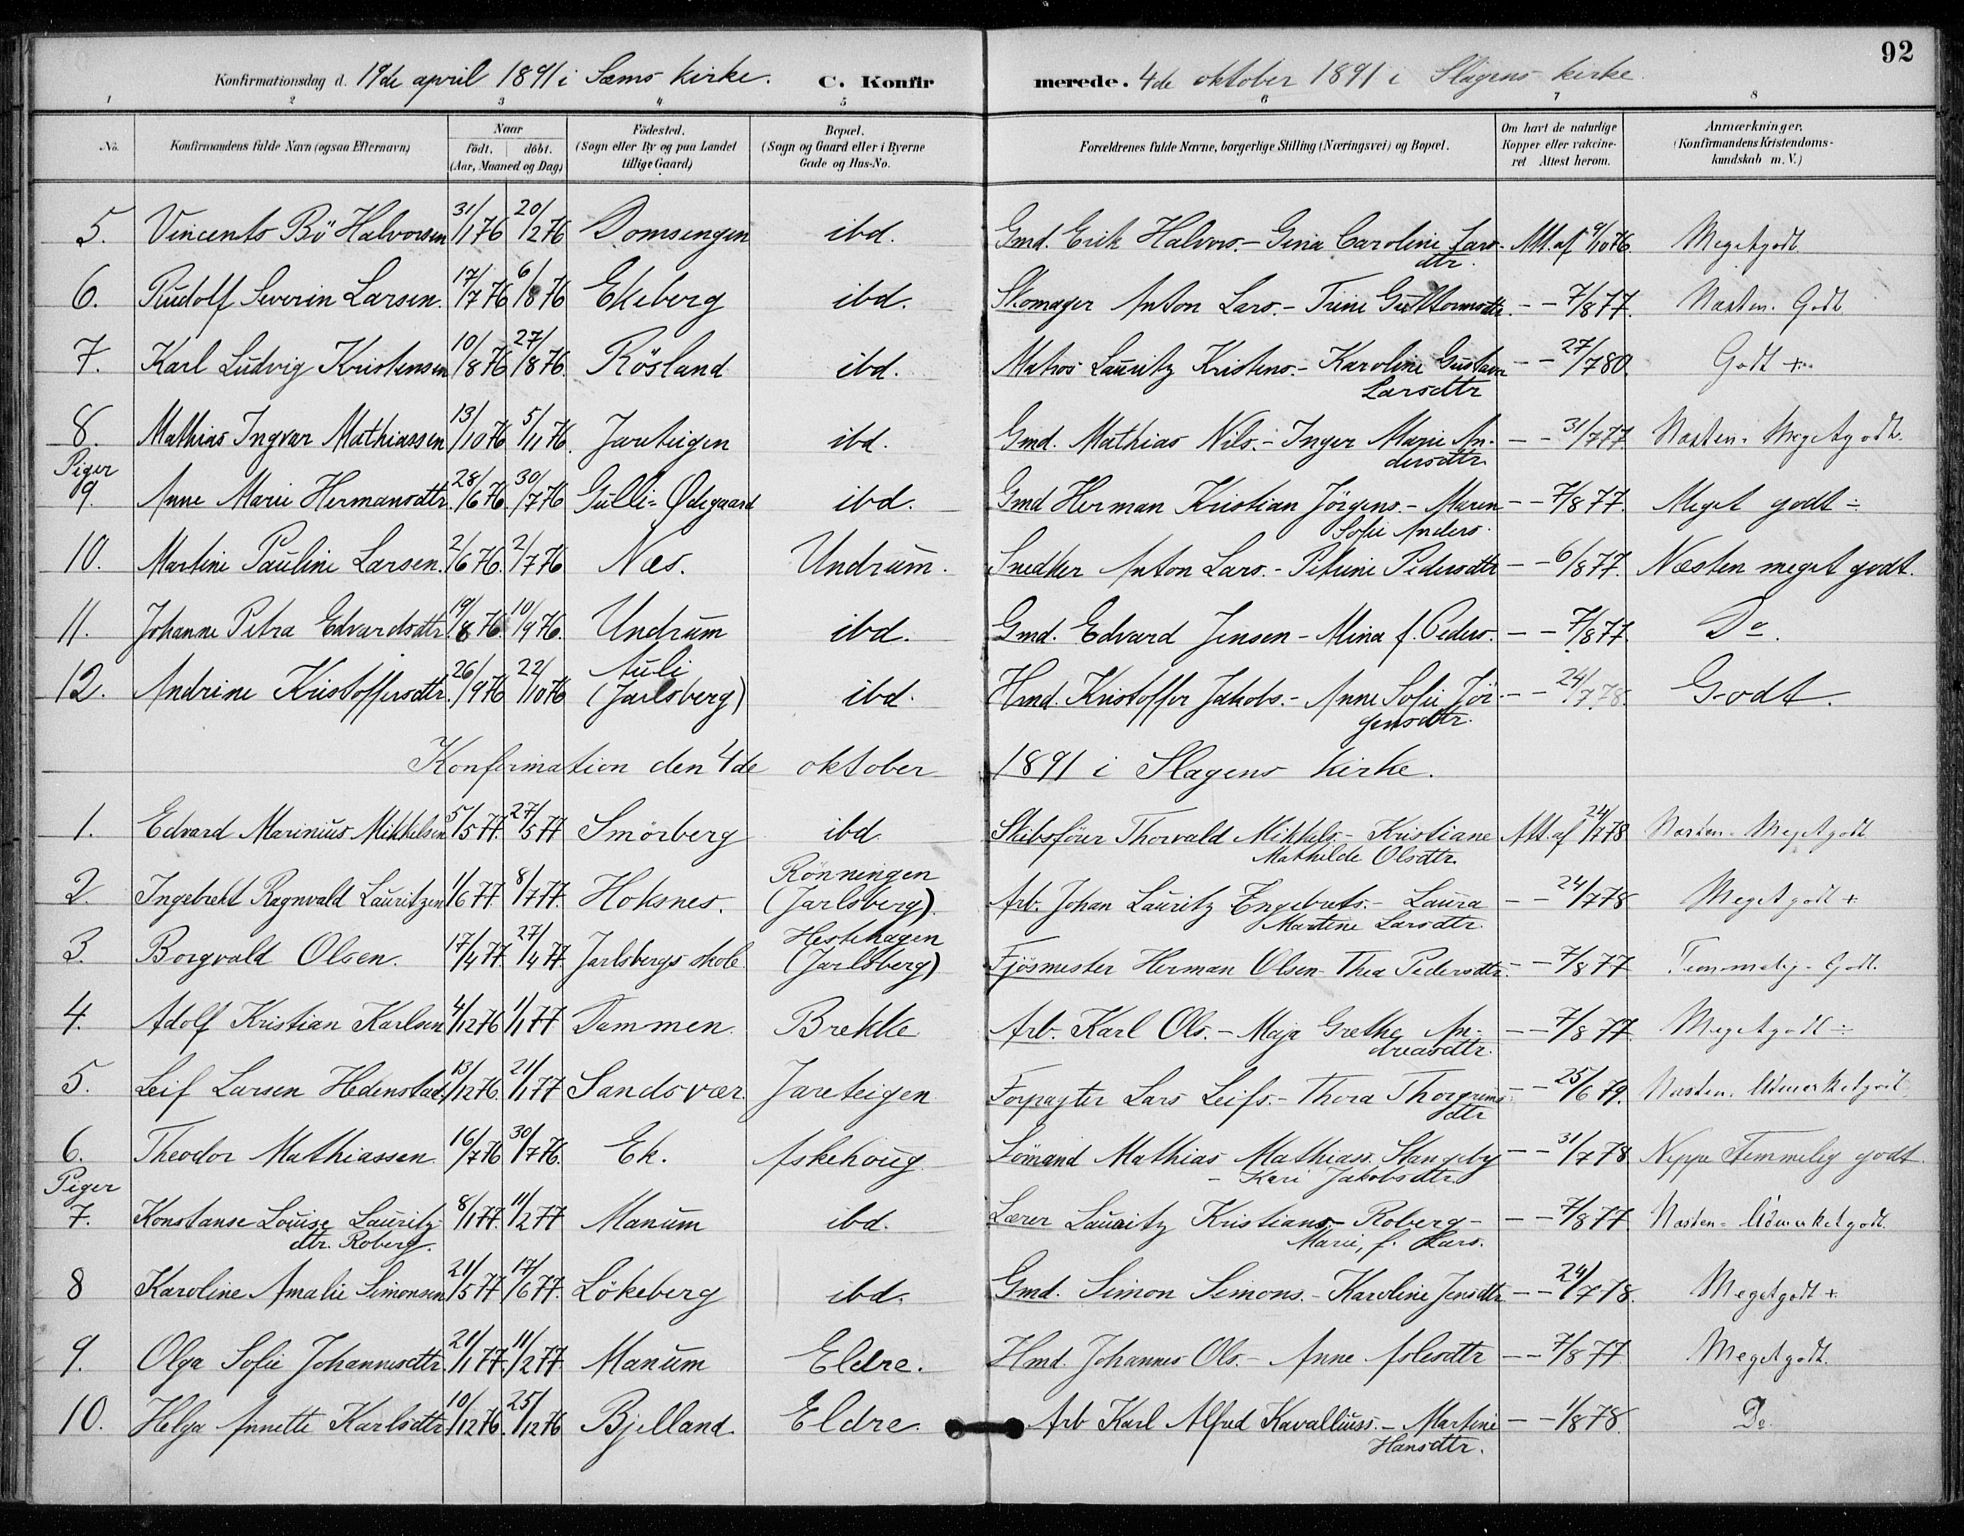 92
Konfirmationsdag d. 19de april 1891 i Sems kirke. C. Konfirmerede. 4de oktober 1891 i Slagens kirke.
1 2 3 4 5 6 7 8
No. Konfirmandens fulde Navn (ogsaa Efternavn) Naar født. døbt. (Aar, Maaned og Dag) Fødested. (Sogn eller By og paa Landet tillige Gaard) Bopæl. (Sogn og Gaard eller i Byerne Gade og Hus-No. Forældrenes fulde Navne, borgerlige Stilling (Næringsvei) og Bopæl. Om havt de naturlige Kopper eller vakcineret Attest herom. Anmærkninger. (Konfirmandens Kristendomskundskab m. V.)
5. Vincents Bö Halvorsen 31/1 76 20/2 76 Domsengen ibd. Gmd. Erik Halvors. - Gina Caroline Lars- Att. af 9/10 76. Megetgodt.
dtr.
6. Rudolf Severin Larsen. 17/7 76 6/8 76 Ekeberg ibd. Skomager Anton Lars. - Trine Guttormsdtr. - - 7/8 77. Næsten. Godt
7. Karl Ludvig Kristensen 10/8 76 27/8 76. Rösland ibd. Matros Lauritz Kristens. - Karoline Gustava - - 27/7 80. Godt +
Larsdtr
8. Mathias Ingvar Mathiassen 13/10 76 5/11 76. Jareteigen ibd. Gmd. Mathias Nils. - Inger Marie An- - - 31/7 77. Næsten. Megetgodt.
dersdtr.
Piger
9. Anne Marie Hermansdtr. 28/6 76. 30/7 76 Gulli-Ødegaard ibd. Gmd Herman Kristian Jörgens. - Maren - - 7/8 77. Meget godt ÷
Sofie Anders.
10. Martine Pauline Larsen. 2/6 76. 2/7 76 Næs. Undrum. Snedker Anton Lars. - Petrine Pedersdtr - - 6/8 77. Næsten meget godt.
11. Johanne Petra Edvardsdtr. 19/8 76. 10/9 76. Undrum ibd. Gmd. Edvard Jensen - Mina f. Peders. - - 7/8 77. Do.
12. Andrine Kristoffersdtr. 26/9 76 22/10 76 Auli (Jarlsberg) ibd. Hmd. Kristoffer Jakobs. - Anne Sofie Jör- - - 24/7 78. Godt.
gensdtr.
Konfirmation den 4de oktober 1891 i Slagens kirke.
1. Edvard Marinius Mikkelsen 5/5 77. 27/5 77 Smörberg ibd. Skibsförer Thorvald Mikkels. - Kristiane Att. af 24/7 78 Næsten - Megetgodt
Mathilde Olsdtr.
2. Ingebrekt Ragnvald Lauritzen 1/6 77. 8/7 77. Hoksnes. Rönningen (Jarlsberg). Arb. Johan Lauritz Engebrets. - Laura - - 24/7 78 Megetgodt +
Martine Larsdtr.
3. Borgvald Olsen. 17/4 77 27/4 77. Jarlsbergs skole Hestehagen (Jarlsberg) Fjösmester Herman Olsen - Thea Pedersdtr. - - 7/8 77 Temmelig - Godt.
4. Adolf Kristian Karlsen 4/12 76 1/1 77 Dammen. Brekke Arb. Karl Ols. - Maja Grethe An- - - 7/8 77. Megetgodt ÷
dreasdtr.
5. Leif Larsen Hedenstad. 13/12 76. 21/1 77 Sandsvær. Jareteigen Forpagter Lars Leifs. - Thora Thorgrims- - - 25/6 79. Næsten. Udmerketgodt
dtr
6. Theodor Mathiassen 16/7 76 30/7 76. Ek. Askehoug Sömand Mathias Mathiass. Slangeby - - 31/7 78 Neppe Temmelig godt.
- Kari Jakobsdtr
Piger
7. Konstanse Louise Lauritz- 8/1 77. 11/2 77 Manum ibd. Lærer Lauritz Kristians - Roberg - - - 7/8 77 Næsten - Udmerketgodt.
dtr. Roberg. Marie, f. Lars.
8 Karoline Amalie Simonsen 21/5 77 17/6 77. Lökeberg ibd. Gmd. Simon Simons. - Karoline Jensdtr - - 24/7 78. Megetgodt +.
9. Olga Sofie Johannesdtr. 21/1 77. 11/2 77. Manum Eldre. Hmd. Johannes Ols. - Anne Aslesdtr - - 7/8 77 Megetgodt.
10. Helga Annette Karlsdtr. 10/12 76. 25/12 76 Bjelland. Eldre. Arb Karl Alfred Kavalliuss. - Martine - - 1/8 78. Do
Hansdtr.